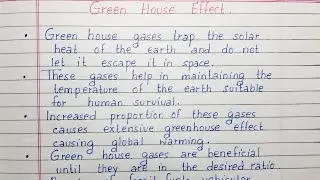 Green House Effect.
• Green house gases trap the solar
heat of the earth and do not
let it escape it in space.
• These gases help in maintaining the
temperature of the earth suitable
for human survival.
• Increased proportion of these gases
causes extensive greenhouse effect
causing global warming.
• Green house gases are beneficial
until they are in the desired ratio.